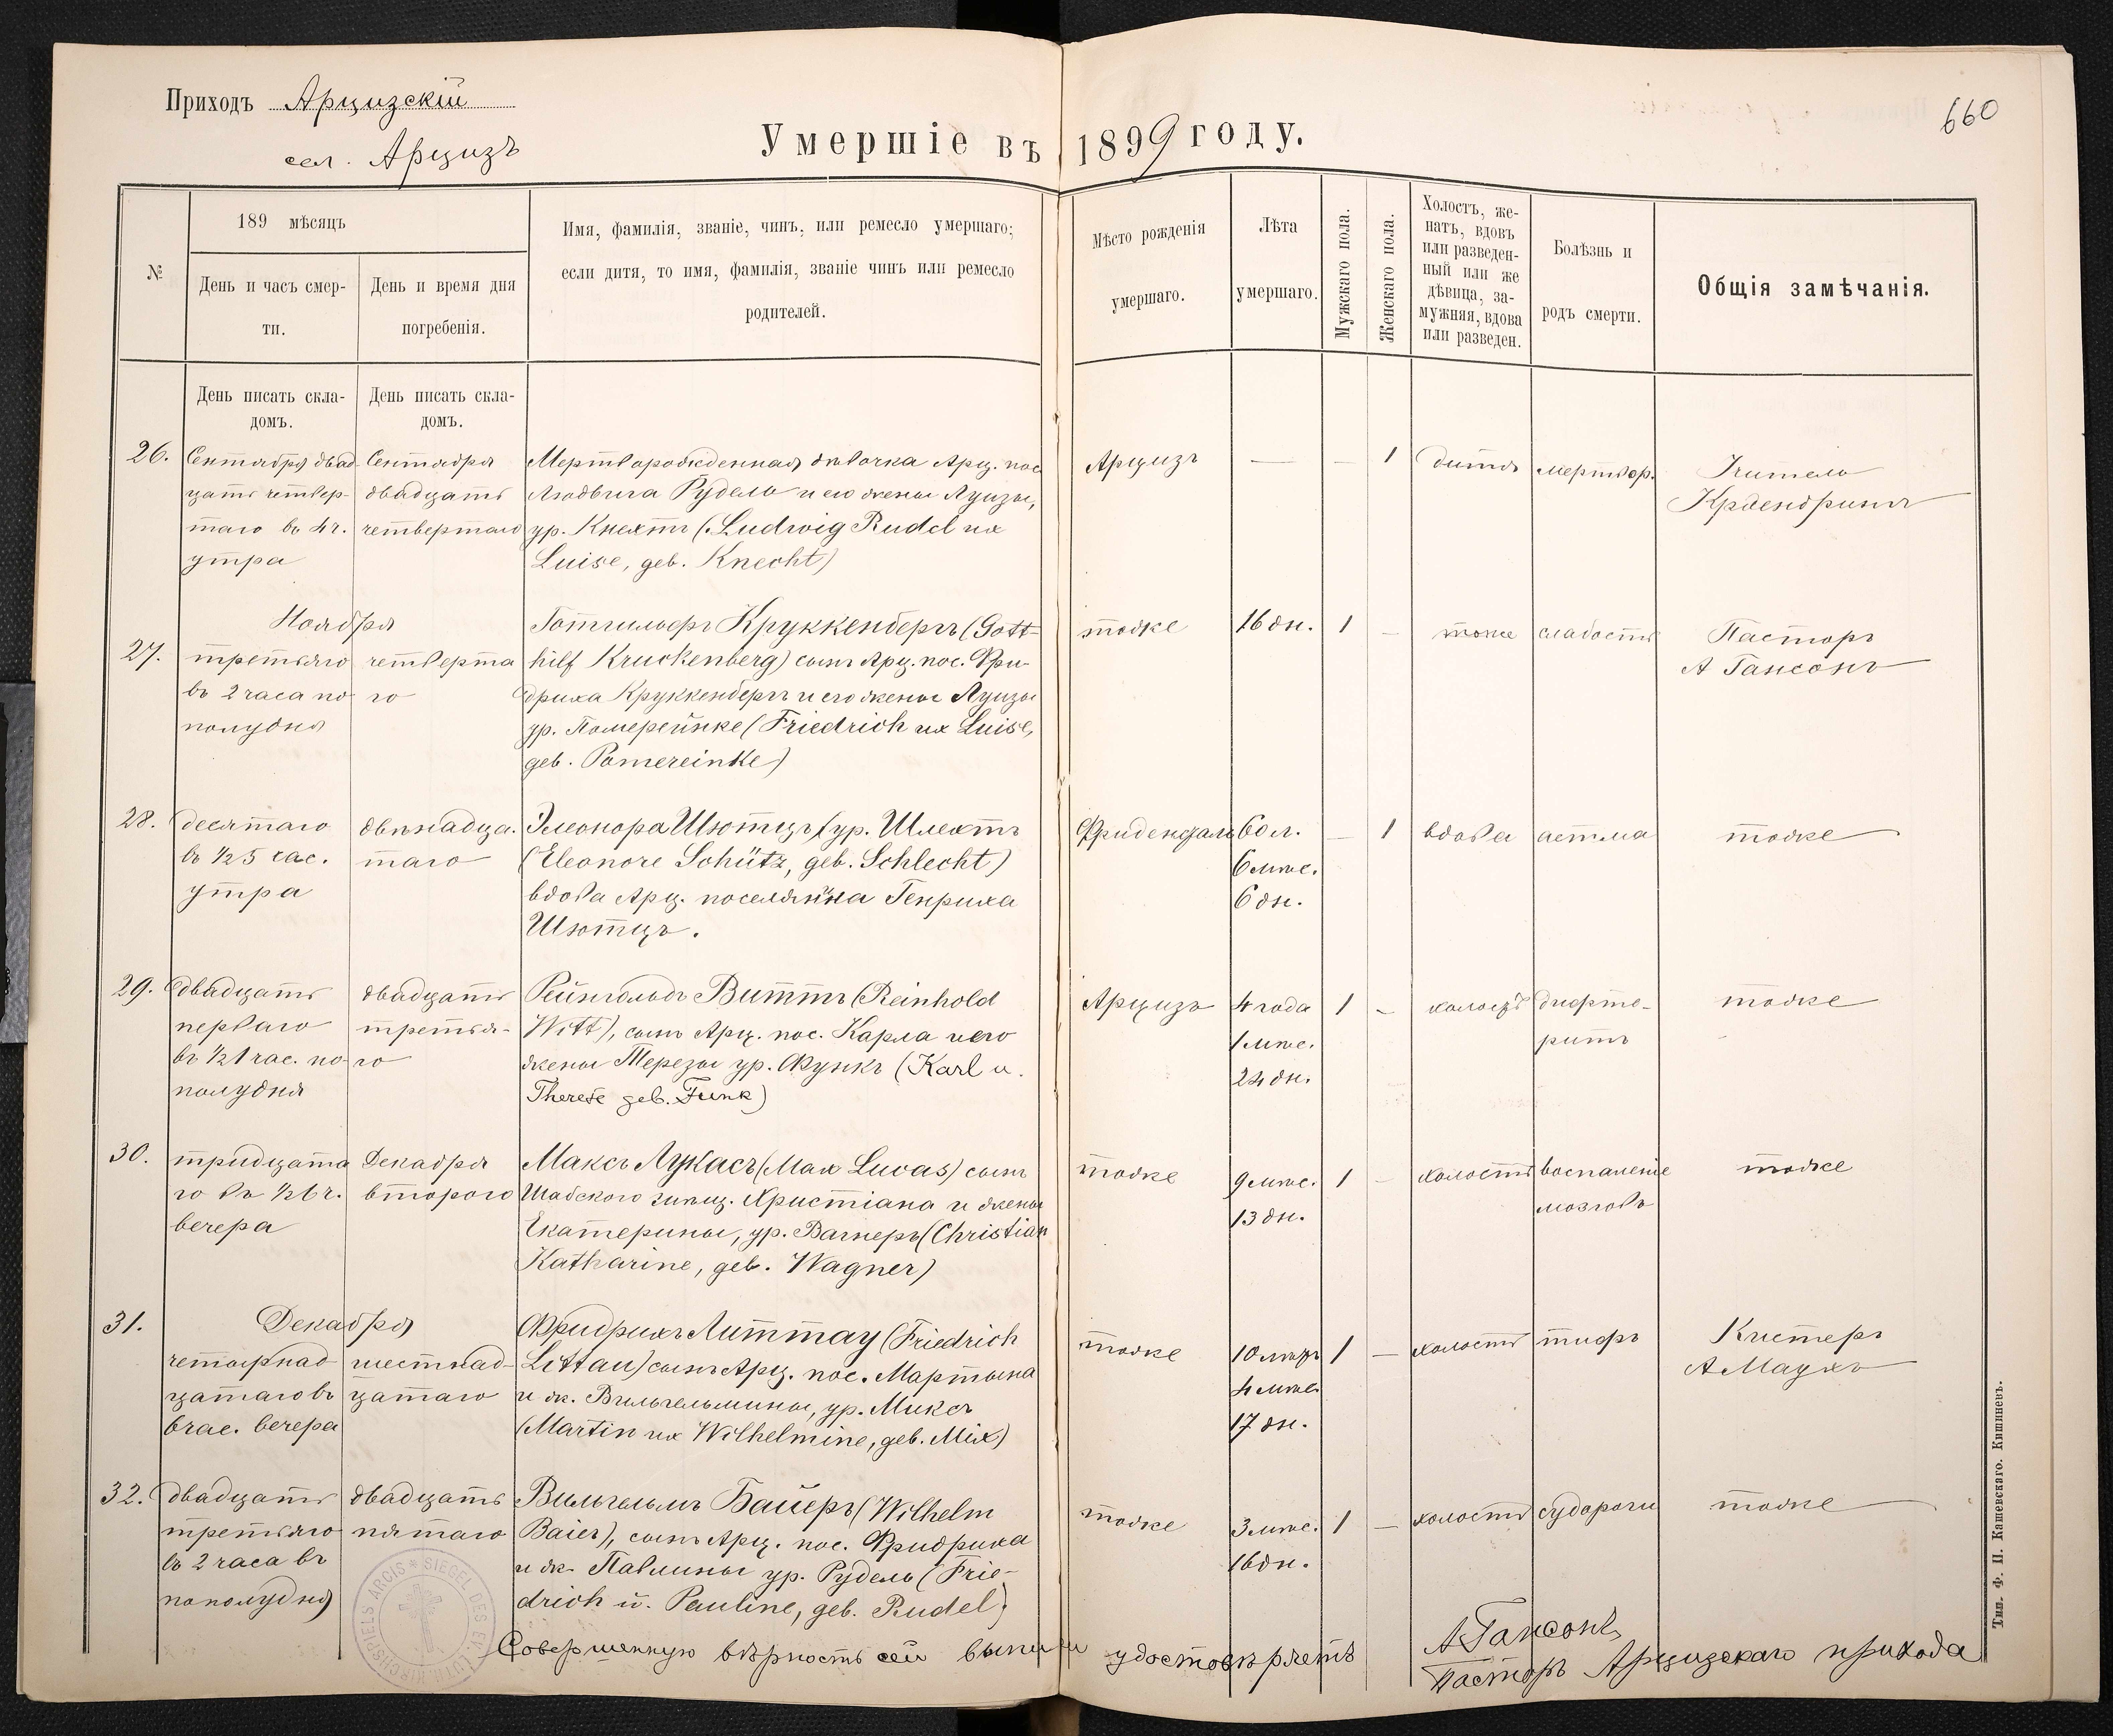 Приходъ Арцизскій
сел. Арцизъ
660
Умершіе въ 1899 году.
№
189 мѣсяцъ
День и часъ смер-
ти.
День и время дня
погребенія.
Имя, фамилія, званіе, чинъ, или ремесло умершаго;
если дитя, то имя, фамилія, званіе чинъ или ремесло
родителей.
Мѣсто рожденія
умершаго.
Лѣта
умершаго.
Мужскаго пола.
Женскаго пола.
Холостъ, же-
натъ, вдовъ
или разведен-
ный или же
дѣвица, за-
мужняя, вдова
или разведен.
Болѣзнь и
родъ смерти.
Общія замѣчанія.
День писать скла-
домъ.
День писать скла-
домъ.
26.
Сентября двад-
цать четвер-
таго въ 4 ч.
утра
Сентября
двадцать
четвертаго
Мертворожденная дѣвочка Арц. пос.
Людвига Рудель и его жены Луизы,
ур. Кнехтъ (Ludwig Rudel ux
Luise, geb. Knecht)
Арцизъ
—
—
1
дитя
мертвор.
Учитель
27.
Ноября
третьяго
въ 2 часа по
полудня
четверта
го
Готгильфъ Круккенбергъ (Gott-
hilf Kruckenberg) сынъ Арц. пос. Фри-
дриха Круккенбергъ и его жены Луизы
ур. Померейнке (Friedrich ux Luise,
geb. Pomereinke)
тоже
16 дн.
1
—
тоже
слабость
Пасторъ
А Гансонъ
28.
десятаго
въ ½5 час.
утра
двѣнадца.
таго
Элеонора Шютцъ (ур. Шлехтъ
(Eleonore Schütz, geb. Schlecht)
вдова Арц. поселянина Генриха
Шютцъ.
Фриденсталь
60 л.
6 мѣс.
6 дн.
—
1
вдова
астма
тоже
29.
двадцать
перваго
въ ½1 час. по-
полудня
двадцать
третья-
го
Рейнгольдъ Виттъ (Reinhold
Witt), сынъ Арц. пос. Карла и его
жены Терезы ур. Функъ (Karl u.
Therese geb. Funk)
Арцизъ
4 года
1 мѣс.
24 дн.
1
—
холостъ
дифте-
ритъ
тоже
30.
тридцата
го въ ½6 ч.
вечера
Декабря
второго
Максъ Лукасъ (Max Lucas) сынъ
Шабского Христіана и жены
Екатерины, ур. Вагнеръ (Christian
Katharine, geb. Wagner)
тоже
9 мѣс.
13 дн.
1
—
холостъ
воспаленіе
мозговъ
тоже
31.
Декабря
четырнад
цатаго въ
час. вечера
шестнад-
цатаго
Фридрихъ Литтау (Friedrich
Littau) сынъ Арц. пос. Мартына
и ж. Вильгельмины, ур. Миксъ
(Martin ux Wilhelmine, geb. Mix)
тоже
10
4 мѣс.
17 дн.
1
—
холостъ
тифъ
Кистеръ
А Маухъ
32.
двадцать
третьяго
въ 2 часа въ
пополудня
двадцать
пятаго
Вильгельмъ Байеръ (Wilhelm
Baier), сынъ Арц. пос. Фридриха
и ж. Павлины ур. Рудель (Frie-
drich u. Pauline, geb. Rudel)
тоже
3 мѣс.
16 дн.
1
—
холостъ
судороги
тоже
Совершенную вѣрность сей выписи удостовѣряетъ
А Гансонъ
пасторъ Арцизскаго прихода
SIEGEL DES EV. LUTH. KIRCHSPIELS ARCIS
Тип. Ф. П. Кашевскаго. Кишиневъ.